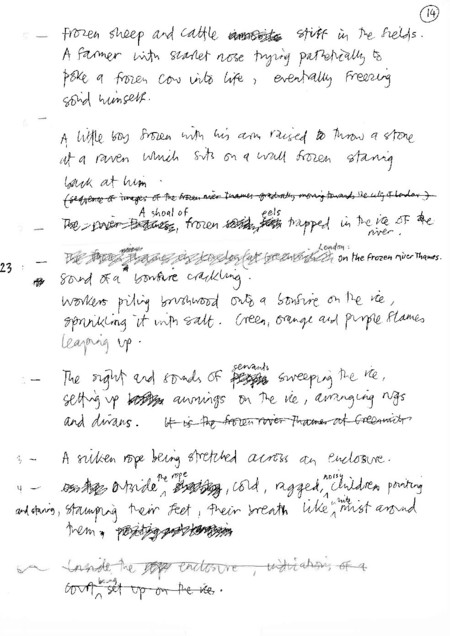 14
— Frozen sheep and cattle stiff in the fields.
A farmer with scarlet nose trying pathetically to
poke a frozen cow into life, eventually freezing
solid himself.
—
A little boy frozen with his arm raised to throw a stone
at a raven which sits on a wall frozen staring
back at him.
(sequence of images of the frozen river Thames gradually moving towards the city of London)
A shoal of eels
— The river Thames, frozen trapped in the ice of the
river.
London: on the frozen river Thames.
23
Sound of a bonfire crackling.
Workers piling brushwood onto a bonfire on the ice,
sprinkling it with salt. Green, orange and purple flames
leaping up.
servants
— The sight and sounds of sweeping the ice,
setting up awnings on the ice, arranging rugs
and divans. It is the frozen river Thames at Greenwich
3 — A silken rope being stretched across an enclosure.
the rope noisy
4 — outside, cold, ragged, children pointing
and staring, stamping their feet, their breath like white mist around
them.
Inside the enclosure, indications of a
being
court set up on the ice.